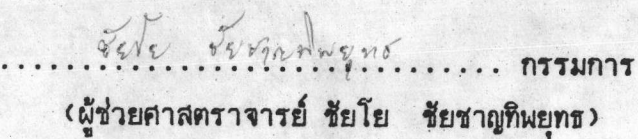 ชัยโย ชัยชาญทิพยุทธ
........................................ กรรมการ
(ผู้ช่วยศาสตราจารย์ ชัยโย ชัยชาญทิพยุทธ)